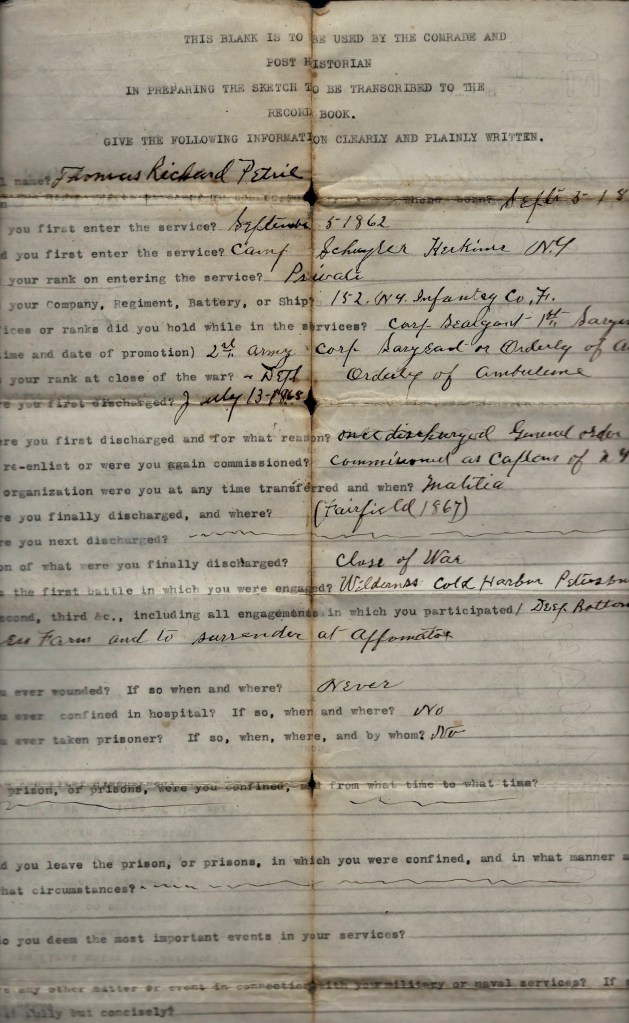 THIS BLANK IS TO BE USED BY THE COMRADE AND
POST HISTORIAN
IN PREPARING THE SKETCH TO BE TRANSCRIBED TO THE
RECORD BOOK.
GIVE THE FOLLOWING INFORMATION CLEARLY AND PLAINLY WRITTEN.
l name? Thomas Richard Petrie
born? Sept 5-18
you first enter the service? September 5-1862
d you first enter the service? Camp Schuyler Herkimer N.Y
your rank on entering the service? Private
your Company, Regiment, Battery, or Ship? 152. N.Y. Infantry Co, F.
ices or ranks did you hold while in the services? Corp Seargant 1st Sargen
ime and date of promotion) 2nd Army Corp Sargeant or Orderly of A
your rank at close of the war? Orderly of ambulance
re you first discharged? July 13-1865
ere you first discharged and for what reason? once discharged General order
re-enlist or were you again commissioned? Commissioned as Captans of N Y
organization were you at any time transferred and when? Malitia
re you finally discharged, and where? (Fairfield 1967)
re you next discharged?
on of what were you finally discharged? Close of War
s the first battle in which you were engaged? Wilderness Cold Harbor Petersbu
econd, third &c., including all engagements in which you participated/ Deep Bottom
Farm and to surrender at Appomatox
u ever wounded? If so when and where? Never
u ever confined in hospital? If so, when and where? No
u ever taken prisoner? If so, when, where, and by whom? No
prison, or prisons, were you confined, and from what time to what time?
d you leave the prison, or prisons, in which you were confined, and in what manner a
hat circumstances?
o you deem the most important events in your services?
any other matter or event in connection with your military or naval services? If
it fully but concisely?